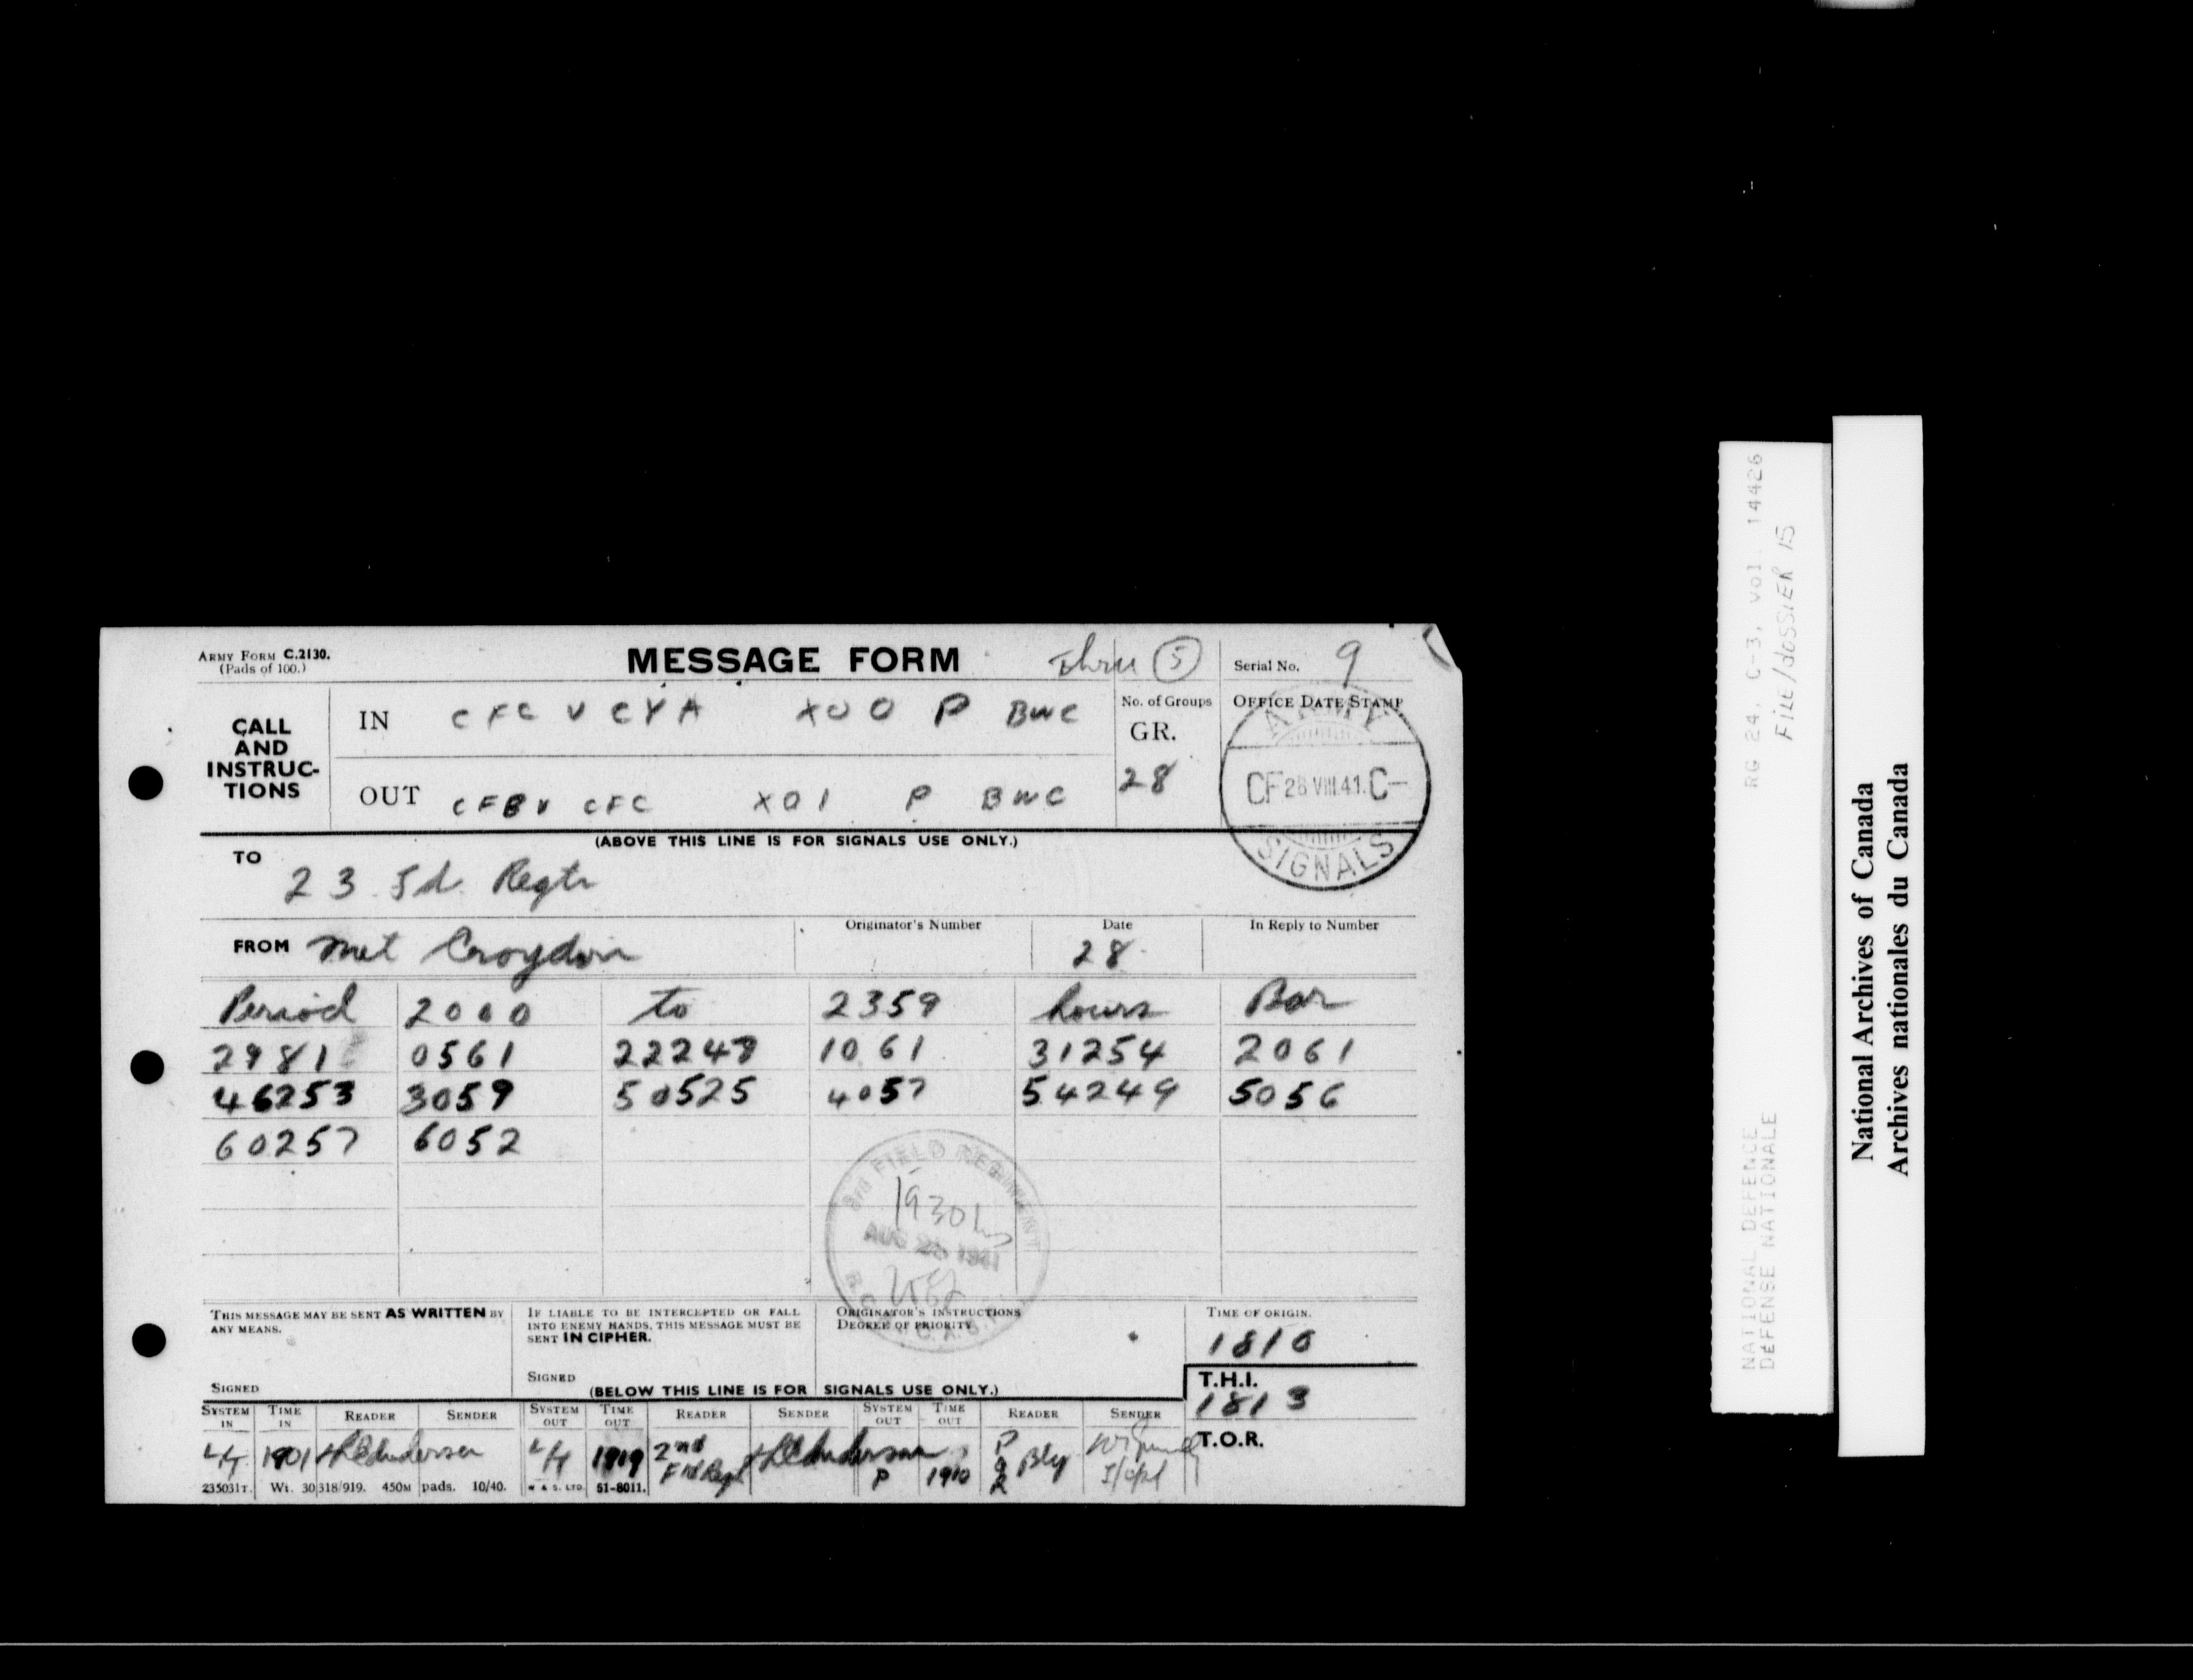 ARMY FORM C.2130.
(Pads of 100.)
MESSAGE FORM
thru 5
Serial No. 9
CALL AND INSTRUC-TIONS
IN CFC V CYA X00 P BWC
No. of Groups
GR.
28
OFFICE DATE STAMP
ARMY
CF 28 VIII.41. C-
SIGNALS
OUT CFB V CFC X01 P BWC
(ABOVE THIS LINE IS FOR SIGNALS USE ONLY.)
TO
23 Fd. Regts
FROM Met Croydon
Originator's Number
Date
28
In Reply to Number
Period 2000 to 2359 hours Bar
2981 0561 22248 1061 31254 2061
46253 3059 50525 4057 54249 5056
60257 6052
3rd FIELD REGIMENT
1930 hrs
AUG 28 1941
R.C.A.
THIS MESSAGE MAY BE SENT AS WRITTEN BY ANY MEANS.
SIGNED
IF LIABLE TO BE INTERCEPTED OR FALL INTO ENEMY HANDS, THIS MESSAGE MUST BE SENT IN CIPHER.
SIGNED
ORIGINATOR'S INSTRUCTIONS
DEGREE OF PRIORITY
TIME OF ORIGIN.
1810
(BELOW THIS LINE IS FOR SIGNALS USE ONLY.)
T.H.I.
1813
T.O.R.
SYSTEM IN TIME IN READER SENDER SYSTEM OUT TIME OUT READER SENDER SYSTEM OUT TIME OUT READER SENDER
L/T 1901 L/T 1919 2nd Fld Regt P 1910
235031T. Wt. 30318/919. 450M pads. 10/40. W & S. LTD. 51-8011.
RG 24, C-3, vol. 14426
FILE/dOSSIER 15
NATIONAL DEFENCE
DÉFENSE NATIONALE
National Archives of Canada
Archives nationales du Canada